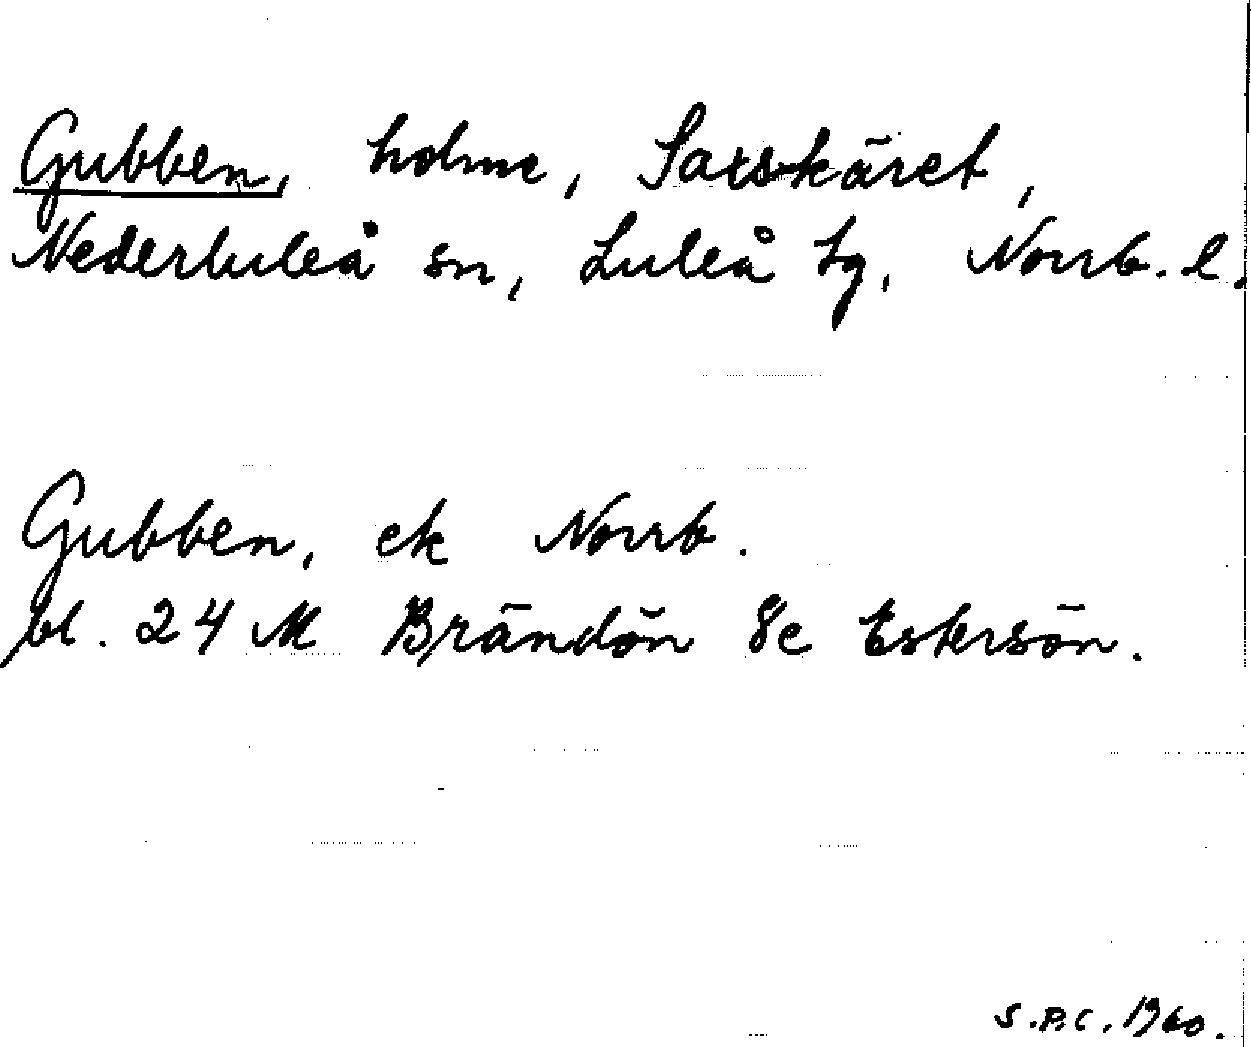 Gubben, holme, Saxskäret,
Nederluleå sn, Luleå tg, Norrb. l.
Gubben, ek Norrb.
bl. 24 M Brändön 8e Estersön.
S.P.C. 1960.